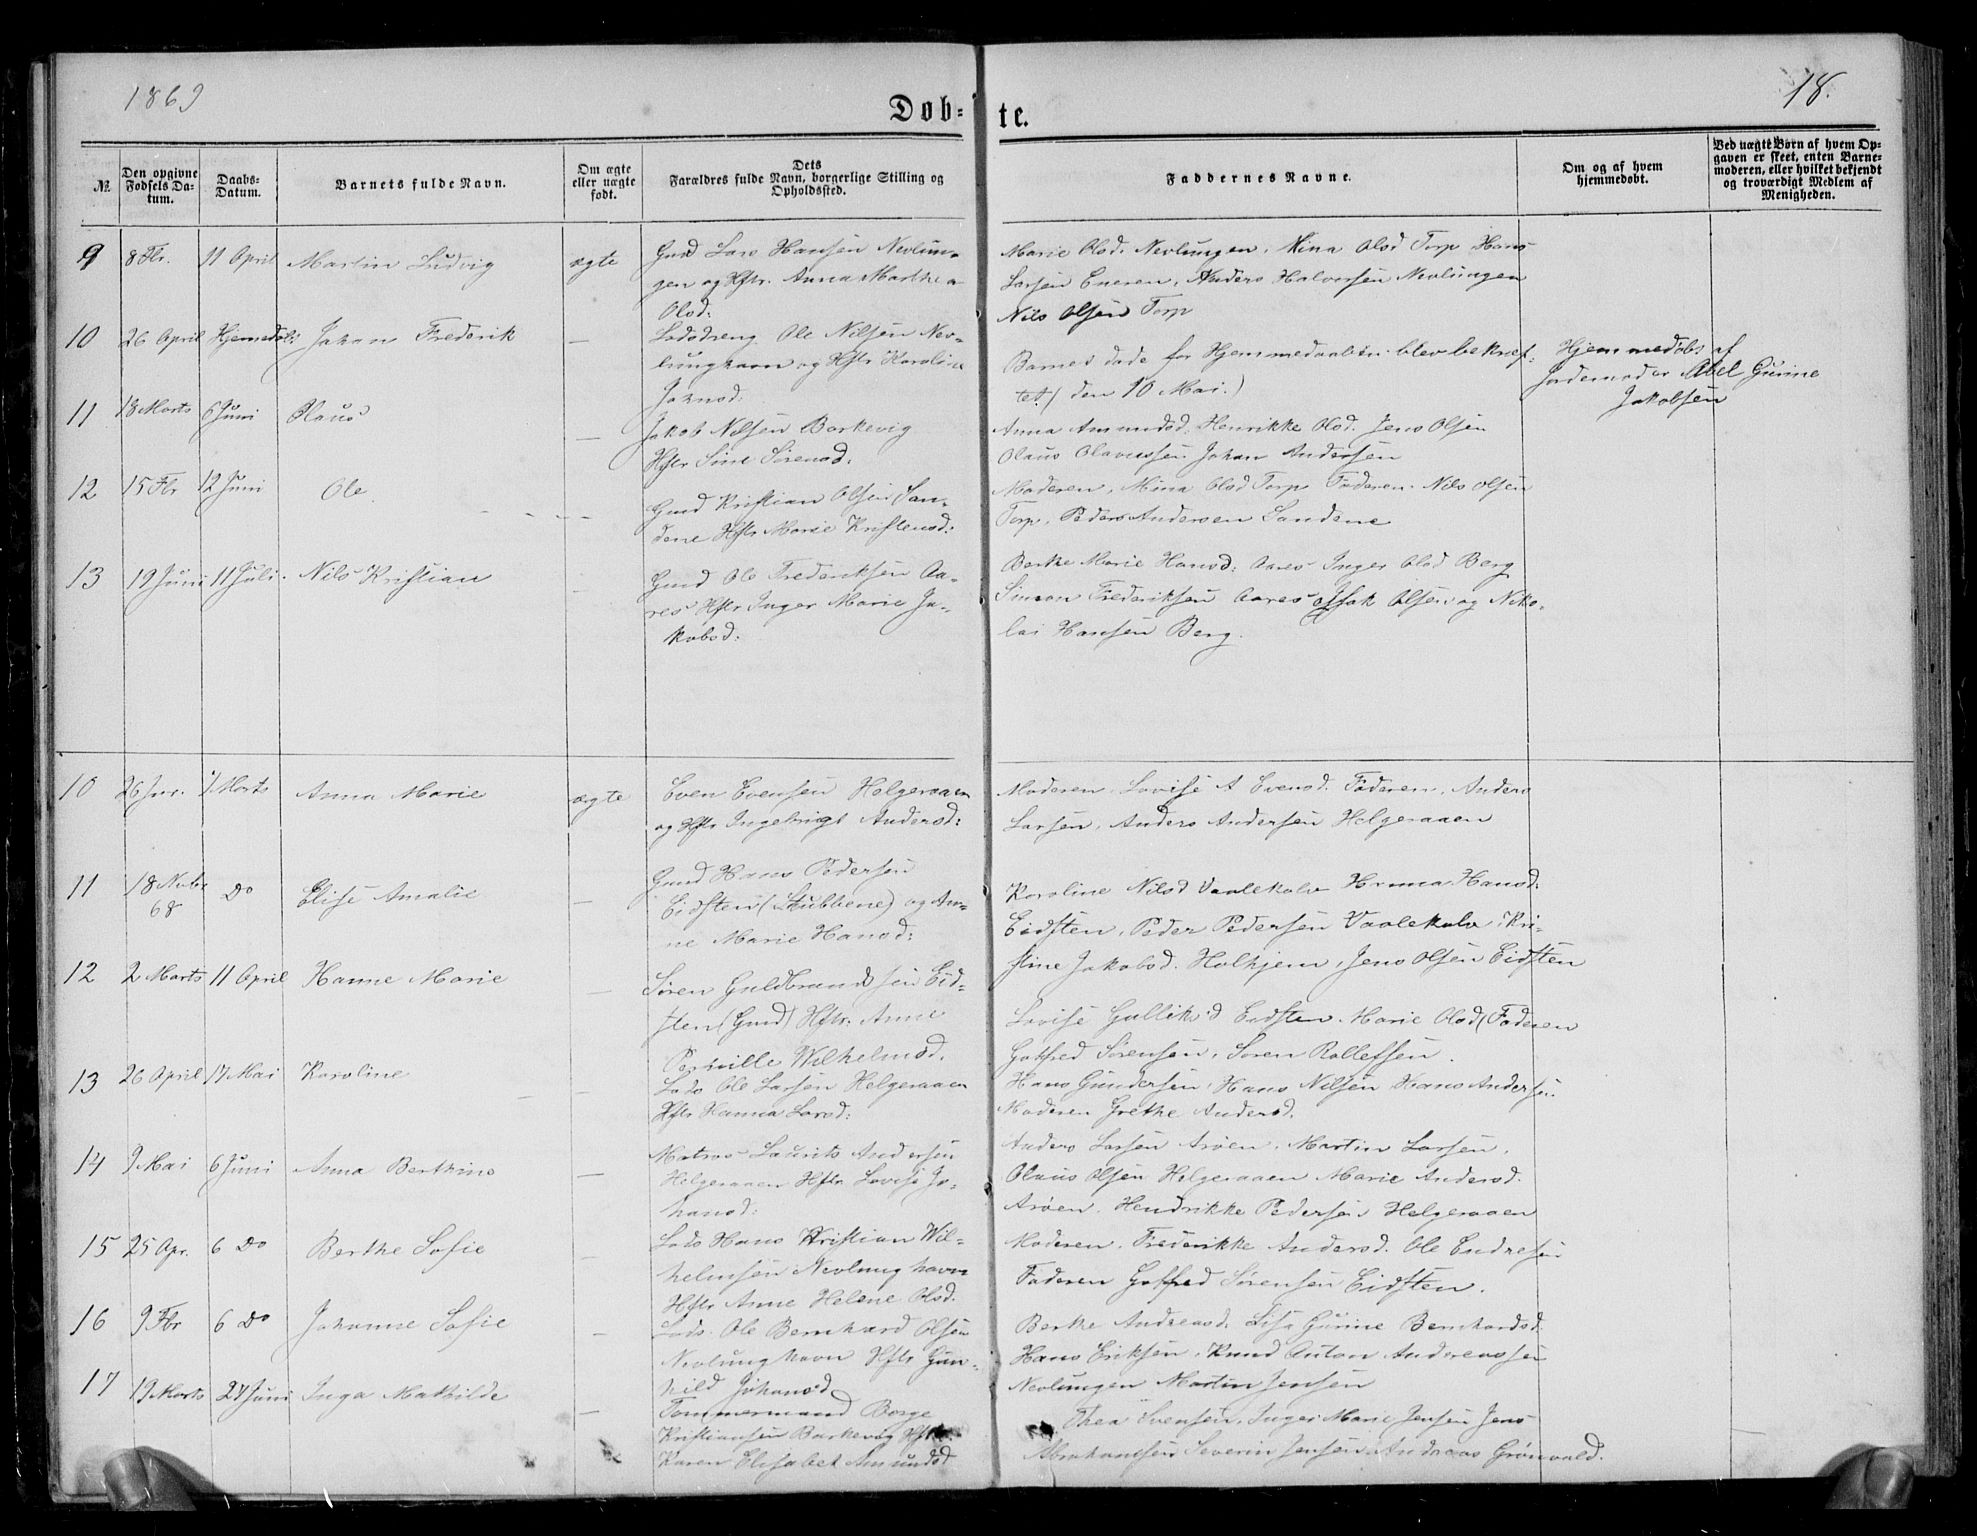 1869
18.
Døb=
te.
№
Den opgivne Fødsels Datum.
Daabs-Datum.
Barnets fulde Navn.
Om ægte eller uægte født.
Dets Forældres fulde Navn, borgerlige Stilling og Opholdssted.
Faddernes Navne.
Om og af hvem hjemmedøbt.
Ved uægte Børn af hvem Opgaven er skeet, enten Barnemoderen, eller hvilket bekjendt og troværdigt Medlem af Menigheden.
9 8 Fbr. 11 April Martin Ludvig ægte Gmd Lars Hansen Nevlun=
gen og Hstr. Anna Marthea
Olsd:
Marie Olsd. Nevlungen, Mina Olsd Torp Hans
Larsen Eneren, Anders Halvorsen Nevlungen
Nils Olsen Torp
10 26 April Hjemedøbt Johan Frederik — Lodsdreng Ole Nilsen Nev=
lunghavn og Hstr Karoline
Johnsd:
Barnets daab for Hjemmedaaben blev bekræf=
tet (den 10 Mai.)
Hjemmedøbt af
Jordemoder Abel Gurine
Jakobsen
11 18 Marts 6 Juni Olaus — Jakob Nilsen Barkevig
Hstr Sine Sørensd.
Anna Amundsd. Henrikke Olsd. Jens Olsen
Olaus Olavessen Johan Andersen
12 15 Fbr 12 Juni Ole — Gmd Kristian Olsen San=
dene Hstr Marie Kristensd:
Moderen, Mina Olsd Torp Faderen. Nils Olsen
Torp. Peder Andersen Sandene
13 19 Juni 11 Juli. Nils Kristian — Gmd Ole Frederiksen Aa=
res Hstr Inger Marie Ja=
kobsd:
Berthe Marie Hansd: Aares Inger Olsd Berg
Simon Frederiksen Aares Isak Olsen og Niko=
lai Hansen Berg.
10 26 Jnr. 1 Marts Anna Marie ægte Even Evensen Helgeraaen
og Hstr Ingebrigt Andersd:
Moderen Lovise A Evensd. Faderen, Anders
Larsen, Anders Andersen Helgeraaen
11 18 Novbr 68 Do Elise Amalie — Gmd Hans Pedersen
Eidsten (Stubbene) og An=
ne Marie Hansd:
Karoline Nilsd Vaalekalv Hanna Hansd:
Eidsten, Peder Pedersen Vaalekalv, Kri=
stine Jakobsd. Holhjem, Jens Olsen Eidsten
12 2 Marts 11 April Hanne Marie — Søren Guldbrandsen Eid=
sten (Gmd) Hstr. Anne
Pernille Wilhelmsd.
Lovise Galliksd Eidsten. Marie Olsd (Faderen
Gotfred Sørensen, Søren Rollefsen.
13 26 April 17 Mai Karoline — Lods Ole Larsen Helgeraaen
Hstr Hanna Larsd:
Hans Gundersen, Hans Nilsen Hans Andersen
Moderen Grethe Andersd.
14 9 Mai 6 Juni Anna Berthine — Matros Laurits Andersen
Helgeraaen Hstr Lovise Jo=
hansd:
Anders Larsen Arøen. Martin Larsen,
Olaus Olsen Helgeraaen Marie Andersd.
Arøen. Hendrikke Pedersen Helgeraaen
15 25 Apr. 6 Do Berthe Sofie Lods Hans Kristian Wil=
helmsen Nevlunghavn
Hstr Anne Helene Olsd.
Moderen. Frederikke Andersd. Ole Endresen
Faderen Gotfred Sørensen Eidsten.
16 9 Fbr 6 Do Johanne Sofie — Lods. Ole Bernhard Olsen
Nevlunghavn Hstr Gun=
hild Johansd
Berthe Andreasd. Lisa Gurine Bernhardsd.
Hans Eriksen, Knud Anton Andreassen
Nevlungen Martin Jensen
17 19 Marts 27 Juni Inga Mathilde — Tømmermand Borge
Kristiansen Barkevig Hstr
Karen Elisabet Amundsd
Thea Svensen, Inger Marie Jensen Jens
Abrahamsen Severin Jensen Andreas Grønvold.